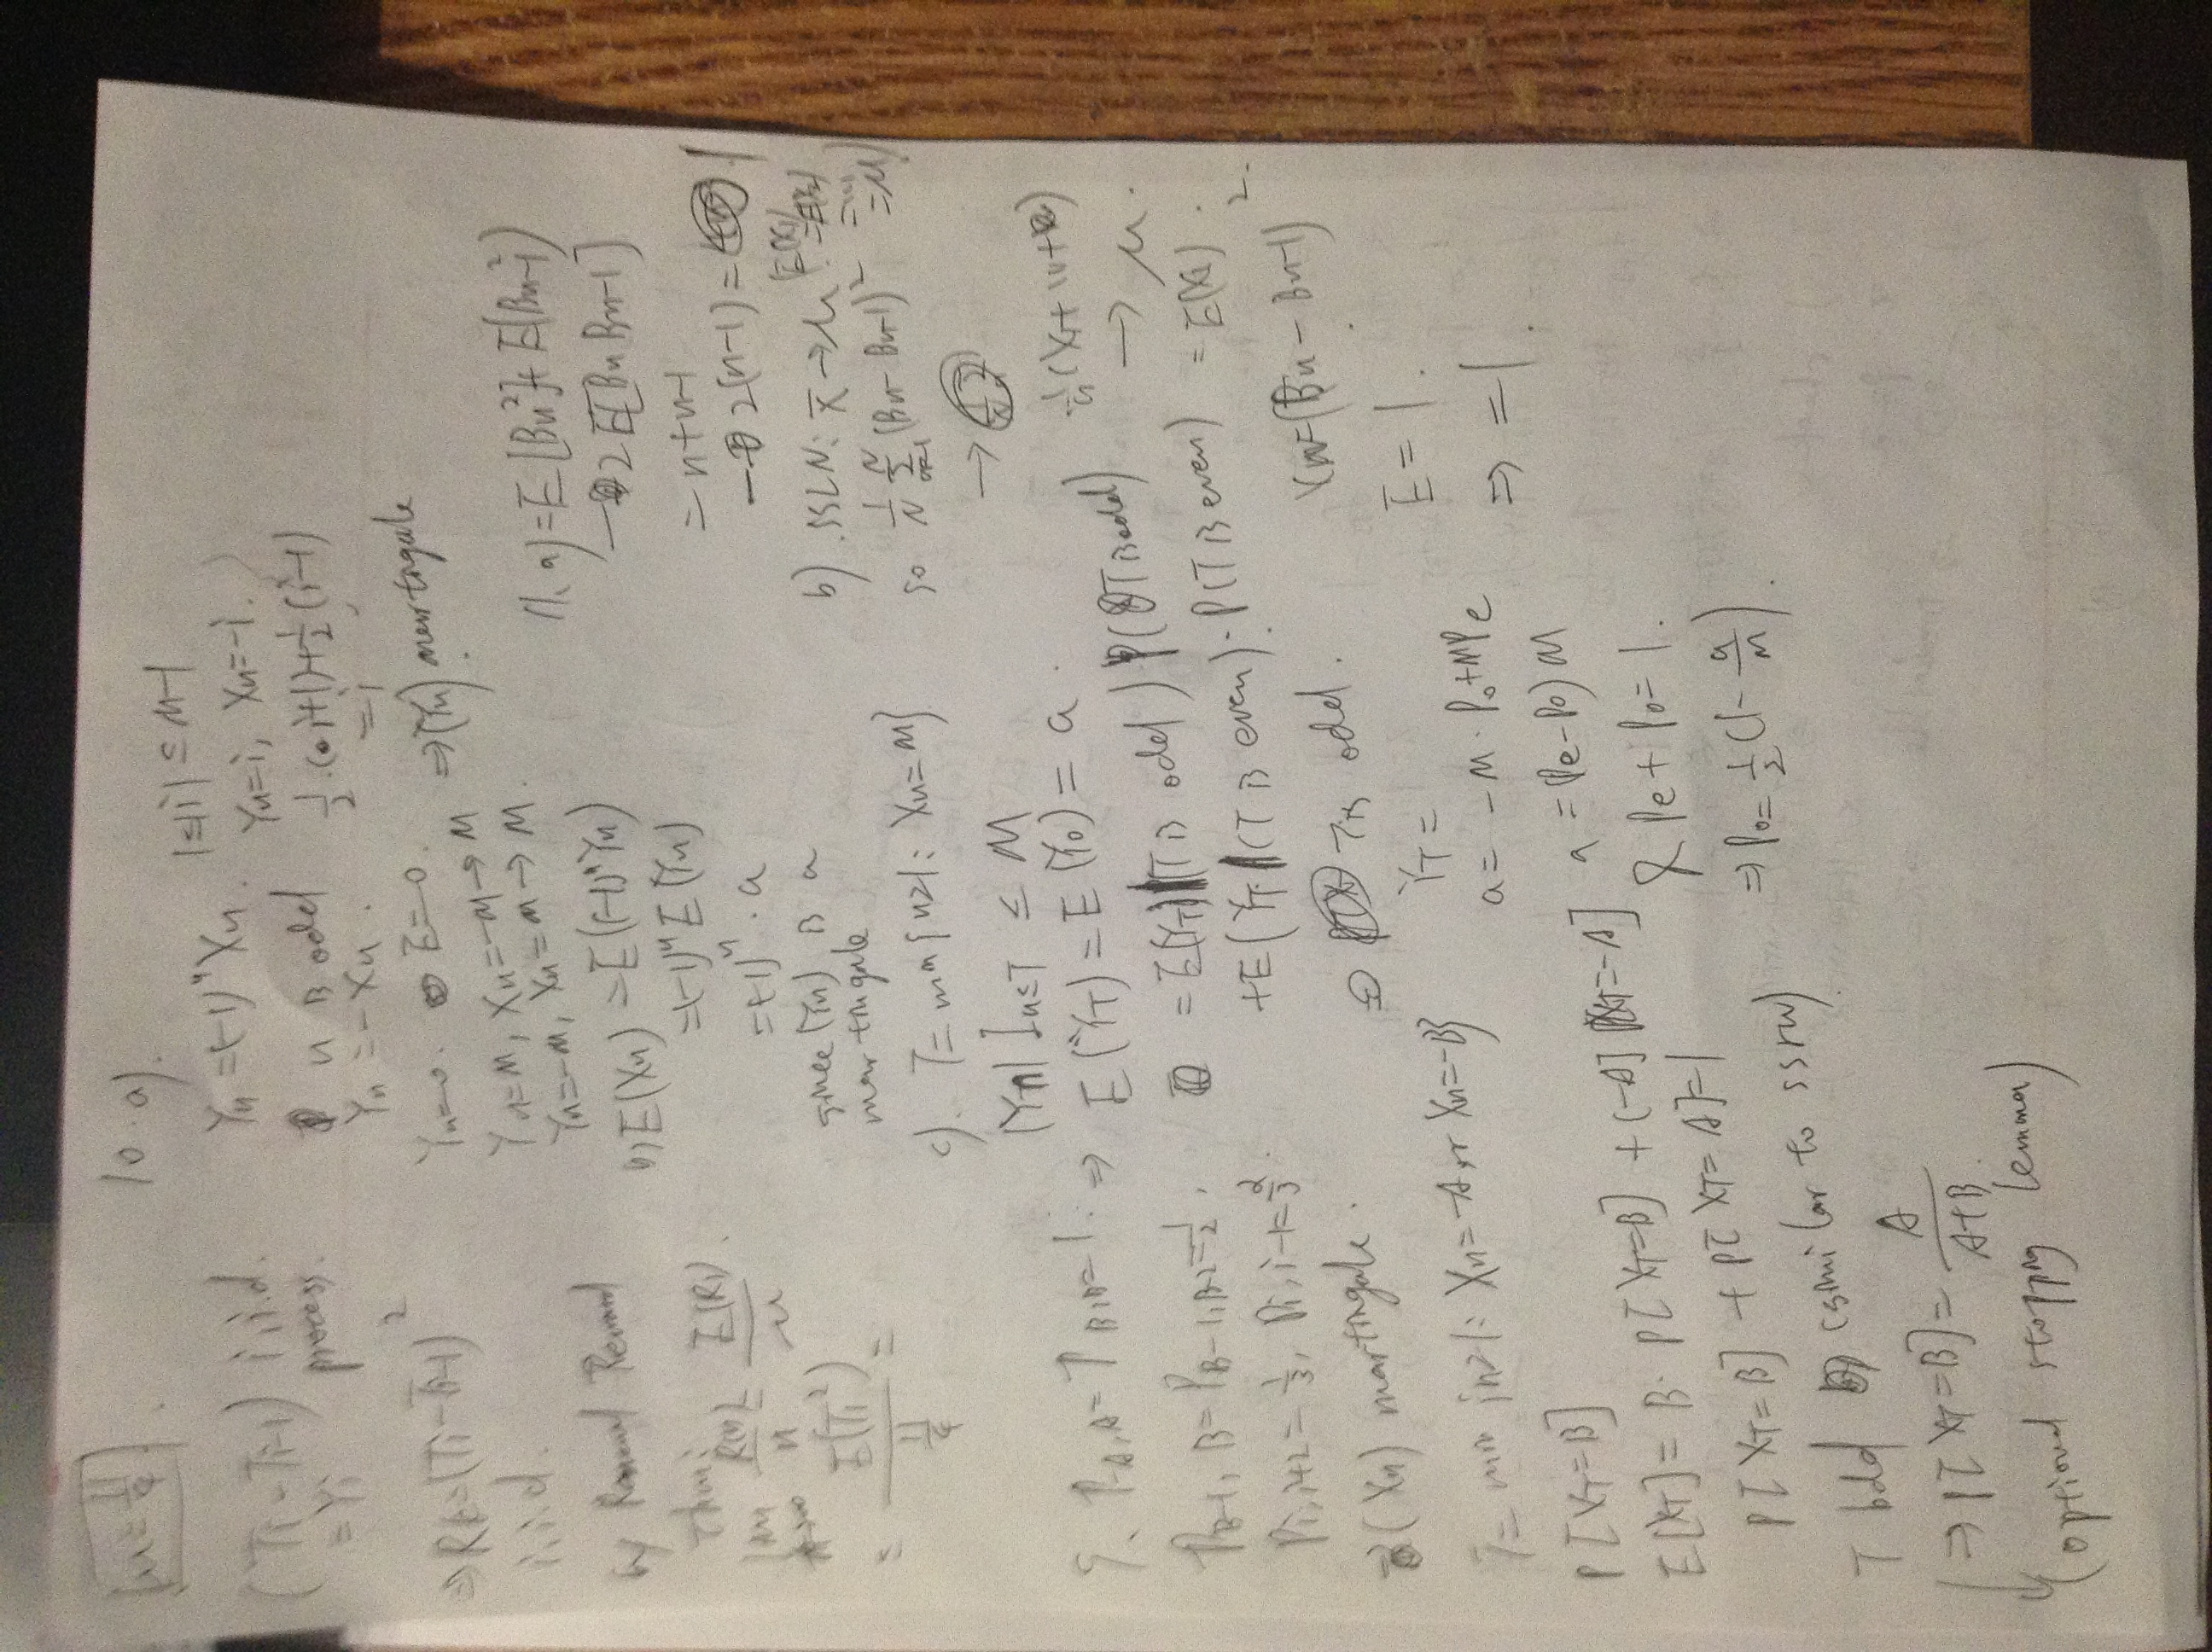 μ = 11/4
(Ti - Ti-1) i.i.d.
= Yi process.
⇒ Rk=(Ti - Ti-1)²
i.i.d.
by Renewal Reward
Thm:
lim R(n)/n = E(R1)/μ.
= E(T1²)/(11/4) =
9. P-A,-A = PB,B = 1. ⇒
PB-1,B = PB-1,B-2 = 1/2.
Pi,i+2 = 1/3, Pi,i-1 = 2/3.
(Xn) martingale.
T = min {n≥1: Xn=-A or Xn=-B}
P[XT=B]
E[XT] = B·P[XT=B] + (-A] P[XT=-A]
P[XT=B] + P[XT=A]=1
T bdd (similar to ssrw)
⇒ P[XT=B] = A/(A+B).
(optional stoppng lemma)
10. a).
Yn = (-1)ⁿXn. 1≤|i|≤M-1
Yn=i, Xn=-i.
n is odd 1/2·(i+1)+1/2(i-1)
Yn = -Xn. = i
Yn=0. E=0.
⇒ (Yn) martingale
Yn=M, Xn=-M → M
Yn=-M, Xn=M → M.
b) E(Xn) = E((-1)ⁿYn)
= (-1)ⁿ E(Yn)
= (-1)ⁿ · a
since (Yn) is a
martingale
c). T = min{n≥1: Xn=M}
|Yn| In≤T ≤ M
E(YT) = E(Y0) = a.
= E(YT|T is odd) P(T is odd)
+E(YT|(T is even)·P(T is even)
T is odd.
YT =
a = -M·Po+MPe
a = (Pe-Po)M
& Pe + Po = 1.
⇒ Po = 1/2(1 - a/M).
11. a) = E[Bn²]+E(Bn-1²)
- 2E[BnBn-1]
= n+n-1
- 2(n-1) = 1
b) SSLN: X̄ → μ.
so 1/N Σ (Bn - Bn-1)²
→
→ μ.
= E(X1).
Xn=(Bn - Bn-1)².
E = 1.
⇒ = 1.